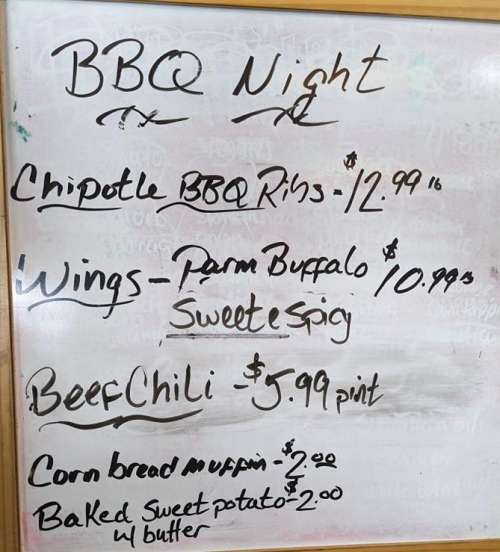 BBQ Night
Chipotle BBQ Ribs - $12.99 lb
Wings - Parm Buffalo $10.99
Sweet e Spicy
Beef Chili - $5.99 pint
Corn bread muffin - $2.00
Baked Sweet potato - $2.00
w/ butter